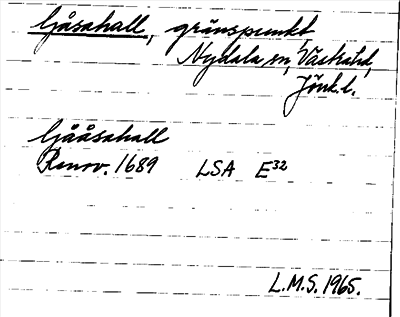 ljåsahall, gränspunkt
Nydala sn, Västra hd,
Jönk. l.
ljååsahall
Renov. 1689 LSA E32
L.M.S. 1965.